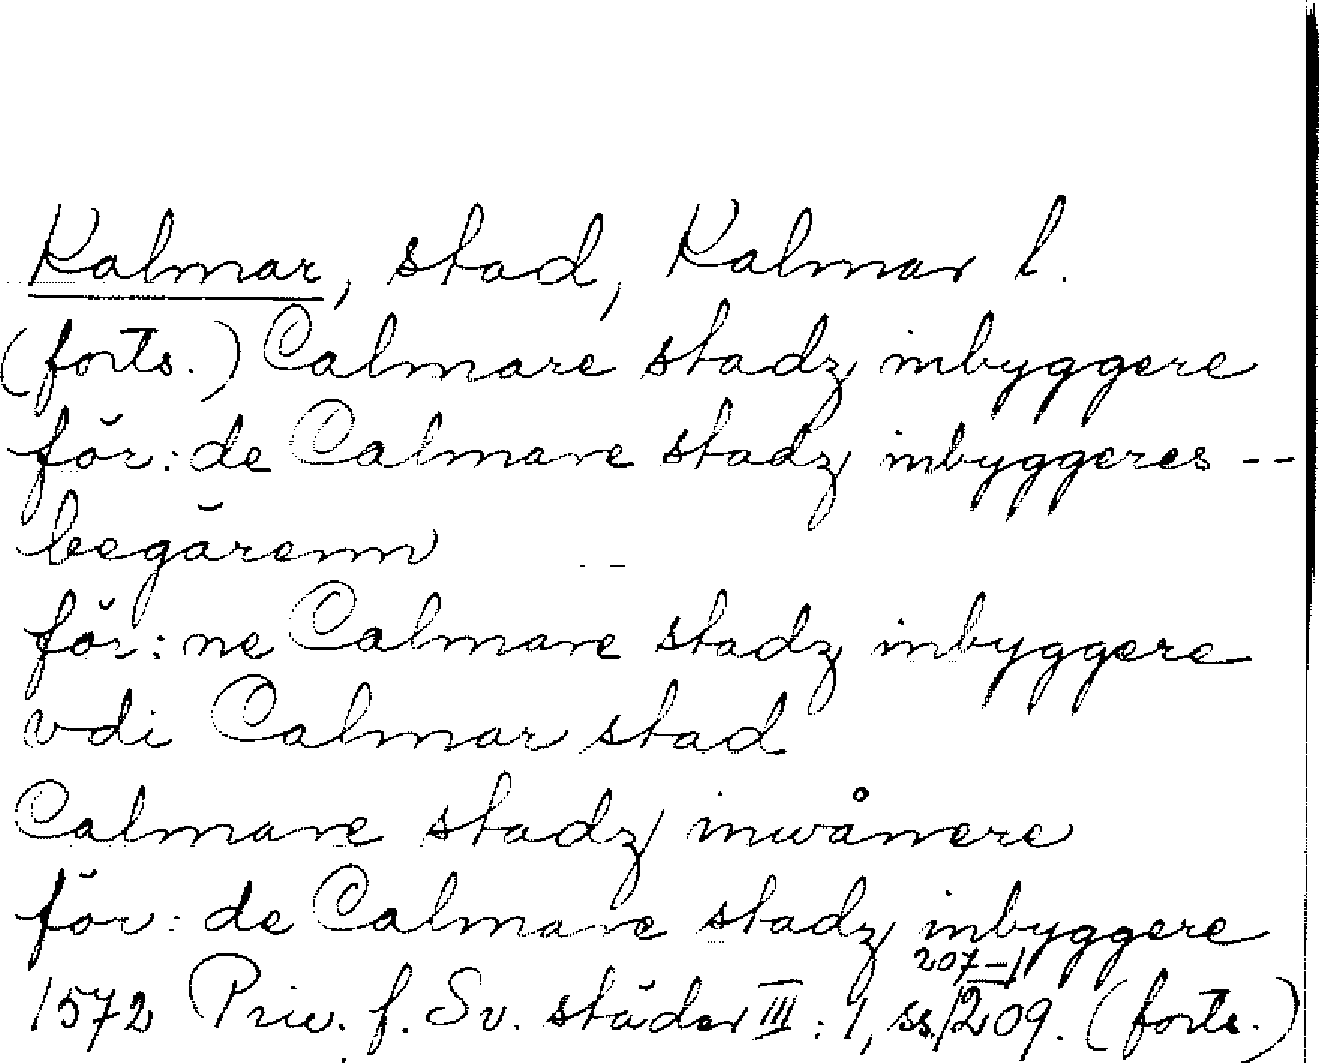 Kalmar, stad, Kalmar l.
(forts.) Calmare stadz inbyggere
för: de Calmare stadz inbyggeres --
begärenn --
för: ne Calmare stadz inbyggere
vdi Calmar stad
Calmare stadz inwånere
för: de Calmare stadz inbyggere
1572 Priv. f. Sv. städer III: 1, ss. 207-209. (forts.)